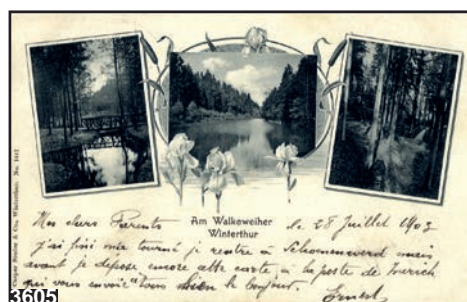 Am Walkeweiher
Winterthur
Mes chers Parents le 28 Juillet 1903
j'ai fini ma tourné je rentre à Schoenenwerd mais
avant je dépose encore cette carte à la poste de Zurich
qui vous envoie à vous le bonjour.
Ernest
& Co., Winterthur. No.
3605